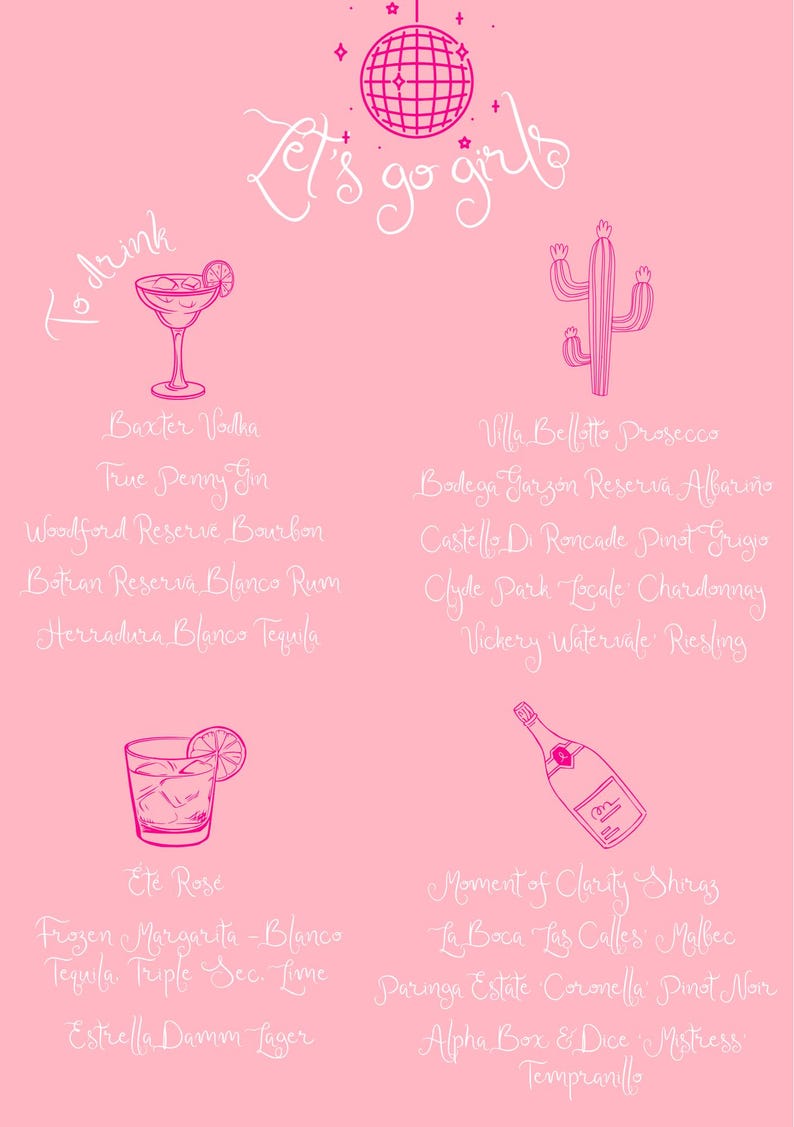 Let's go girls
To drink
Baxter Vodka
True Penny Gin
Woodford Reserve Bourbon
Botran Reserva Blanco Rum
Herradura Blanco Tequila
Villa Bellotto Prosecco
Bodega Garzón Reserva Albariño
Castello Di Roncade Pinot Grigio
Clyde Park 'Locale' Chardonnay
Vickery 'Watervale' Riesling
Été Rosé
Frozen Margarita - Blanco
Tequila, Triple Sec, Lime
Estrella Damm Lager
Moment of Clarity Shiraz
La Boca 'Las Calles' Malbec
Paringa Estate 'Coronella' Pinot Noir
Alpha Box & Dice 'Mistress'
Tempranillo